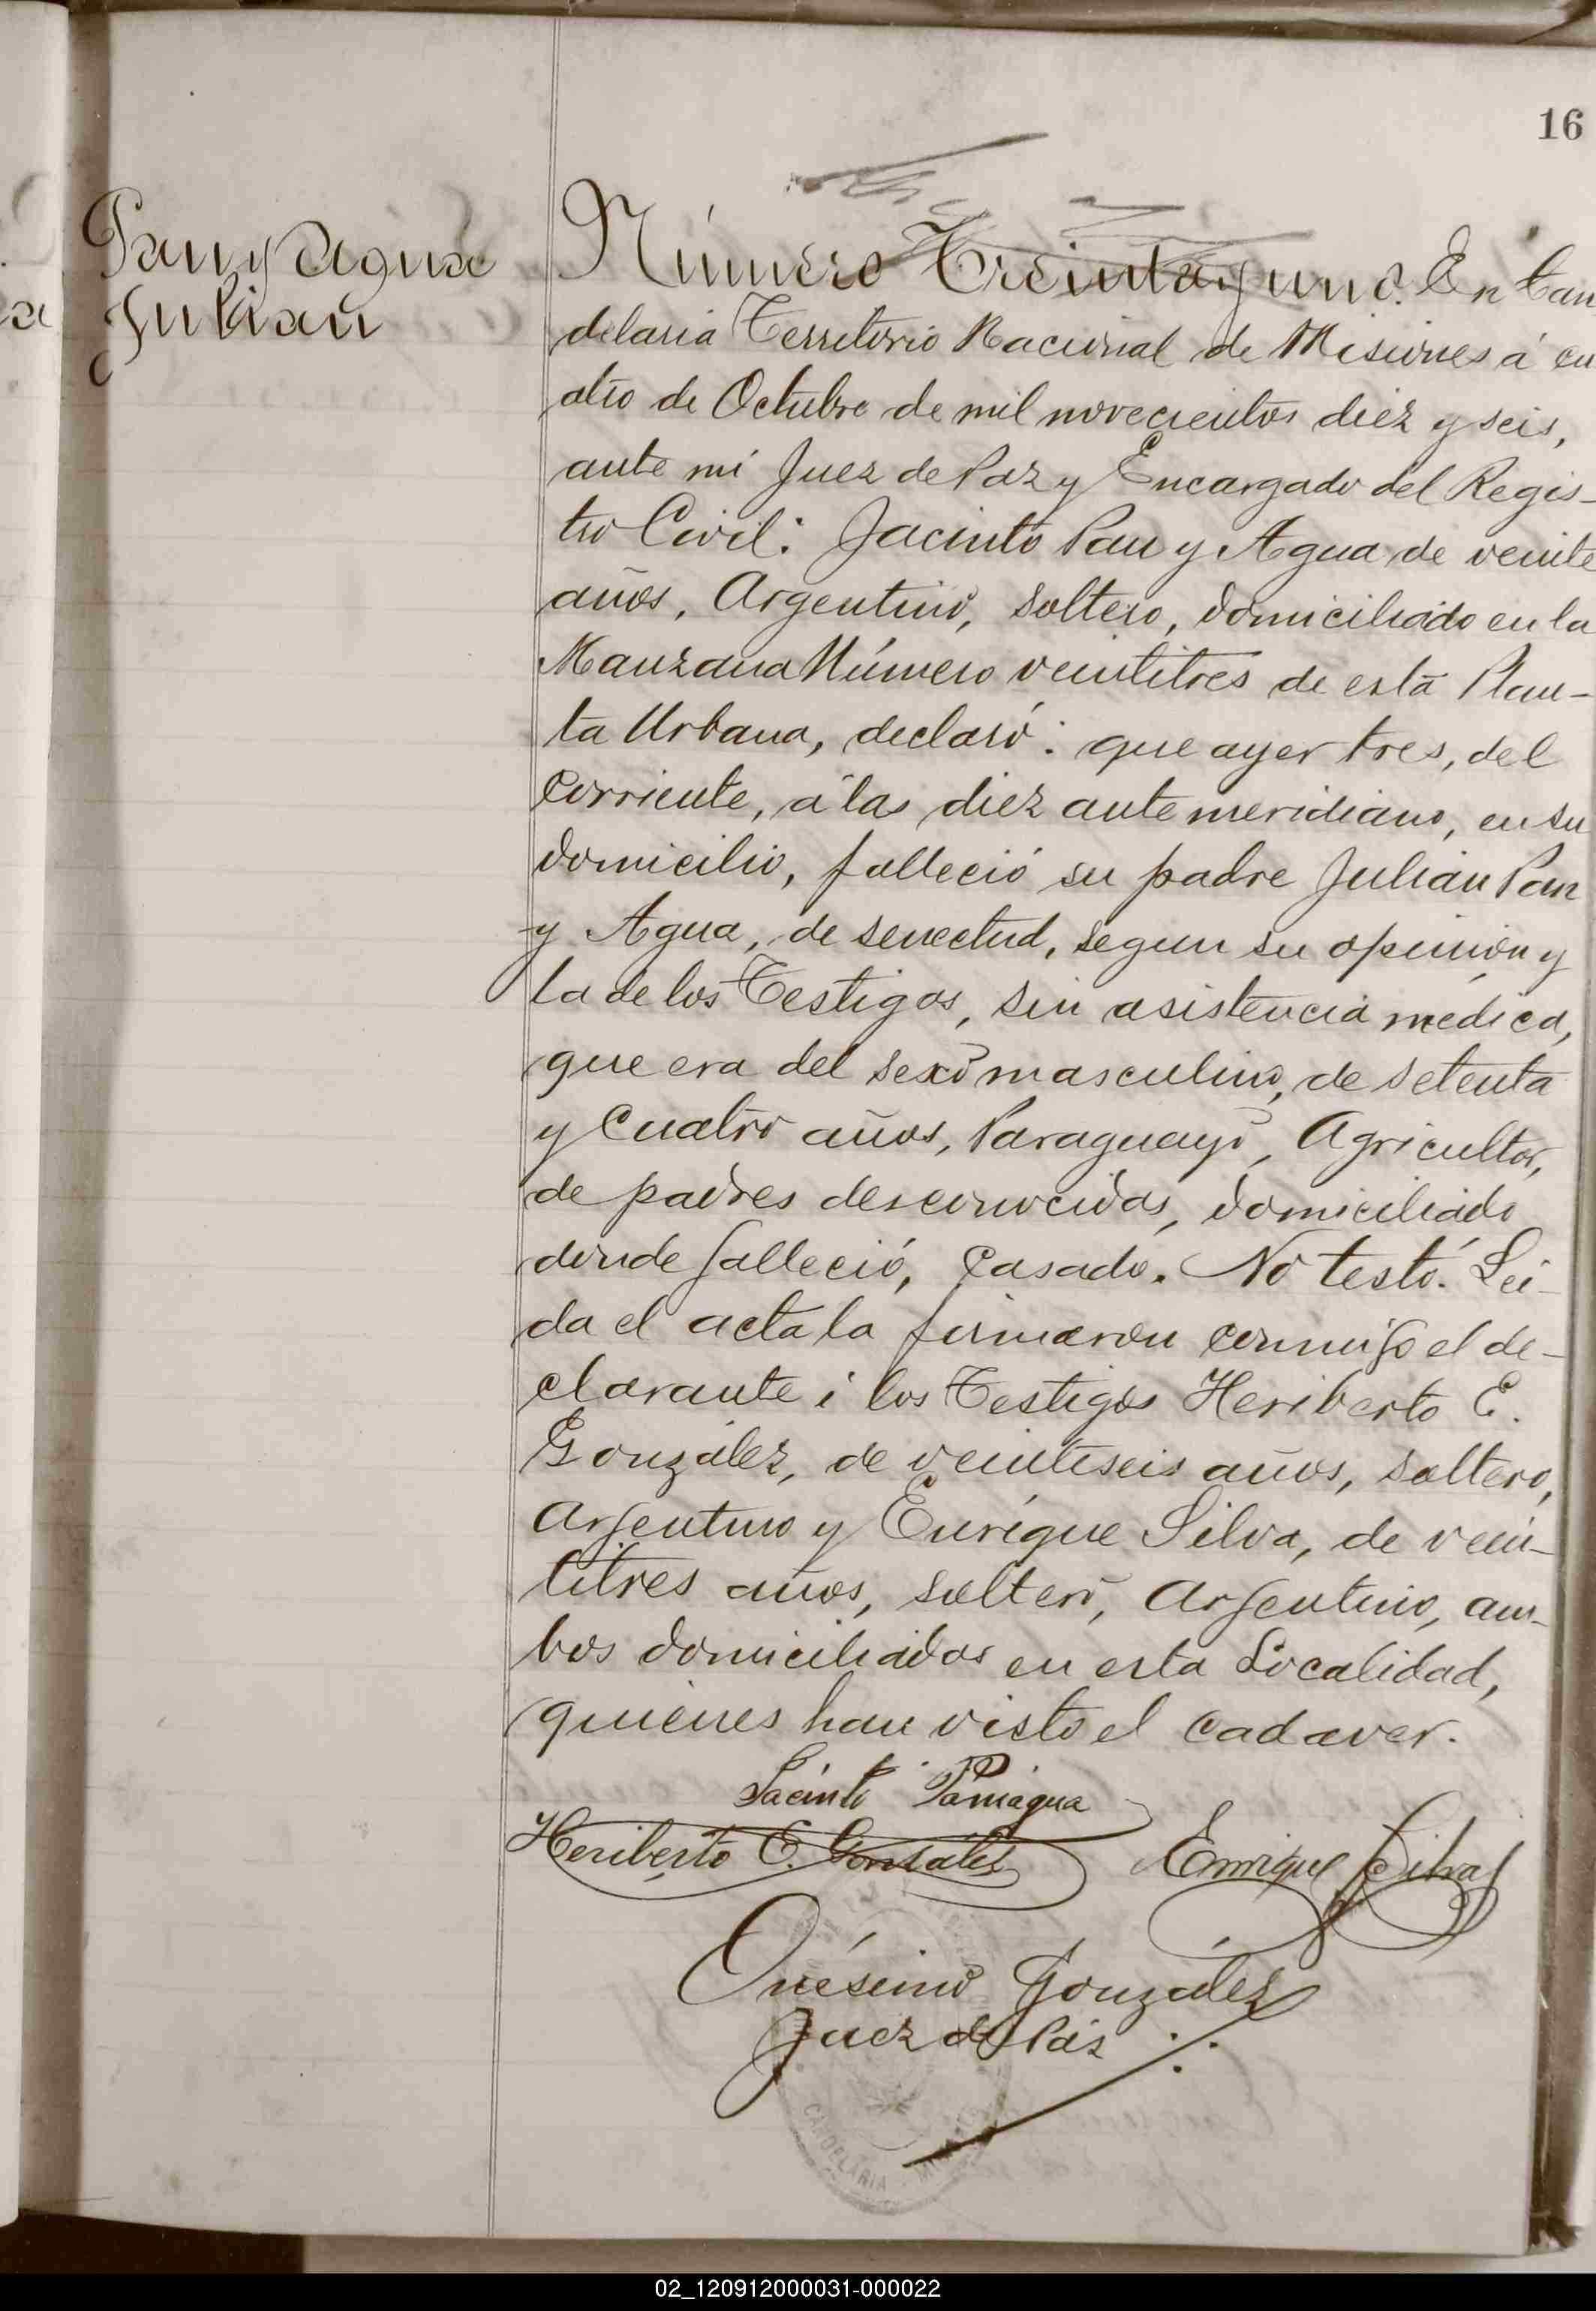 16
Pan y Agua
Julian
Número Treinta y uno. En Can
delaria Territorio Nacional de Misiones á cu
atro de Octubre de mil novecientos diez y seis,
ante mi Juez de Paz y Encargado del Regis-
tro Civil: Jacinto Pan y Agua de veinte
años, Argentino, soltero, domiciliado en la
Manzana Número veintitres de esta Plan-
ta Urbana, declaró: que ayer tres, del
corriente, á las diez ante meridiano, en su
domicilio, falleció su padre Julián Pan
y Agua, de senectud, segun su opinión y
la de los Testigos, sin asistencia medica,
que era del sexo masculino, de setenta
y cuatro años, Paraguayo, Agricultor,
de padres desconocidos, domiciliado
donde falleció, casado. No testó. Lei-
da el acta la firmaron conmigo el de-
clarante i los Testigos Heriberto E.
González, de veintiseis años, soltero,
Argentino y Enrique Silva, de vein-
titres años, soltero, Argentino, am-
bos domiciliados en esta Localidad,
quienes han visto el cadaver.
Jacinto Paniagua
Heriberto E. Gonsález
Enrique Silva
Onésimo González
Juez de Páz
CANDELARIA
02_120912000031-000022